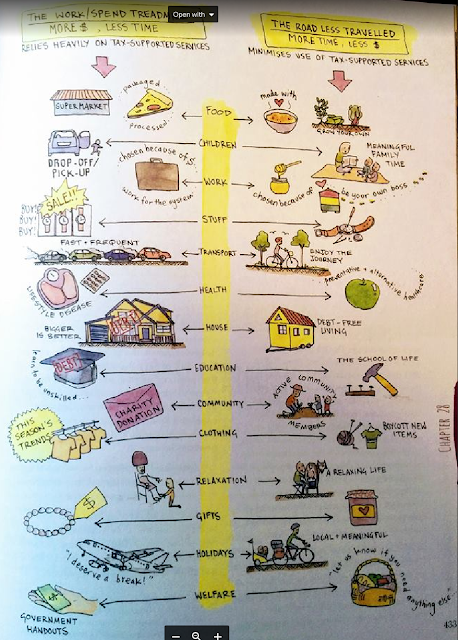 Open with
THE WORK/SPEND TREADM
MORE $, LESS TIME
RELIES HEAVILY ON TAX-SUPPORTED SERVICES
THE ROAD LESS TRAVELLED
MORE TIME, LESS $
MINIMISES USE OF TAX-SUPPORTED SERVICES
SUPERMARKET
packaged
processed...
FOOD
made with
GROW YOUR OWN
DROP-OFF/
PICK-UP
CHILDREN
MEANINGFUL
FAMILY
TIME
chosen because of $
work for the system
WORK
chosen because of
be your own boss
SALE!!
BUY!
BUY!
BUY!
STUFF
FAST + FREQUENT
TRANSPORT
ENJOY THE
JOURNEY
LIFESTYLE DISEASE
HEALTH
preventative + alternative healthcare
BIGGER
IS BETTER
DEBT
HOUSE
DEBT-FREE
LIVING
DEBT
learn to be unskilled...
EDUCATION
THE SCHOOL OF LIFE
CHARITY
DONATION
COMMUNITY
ACTIVE COMMUNITY
MEMBERS
THIS
SEASON'S
TRENDS
CLOTHING
BOYCOTT NEW
ITEMS
RELAXATION
A RELAXING LIFE
$
GIFTS
"I deserve a break!"
HOLIDAYS
LOCAL + MEANINGFUL
GOVERNMENT
HANDOUTS
WELFARE
"let us know if you need
anything else"
CHAPTER 28
433